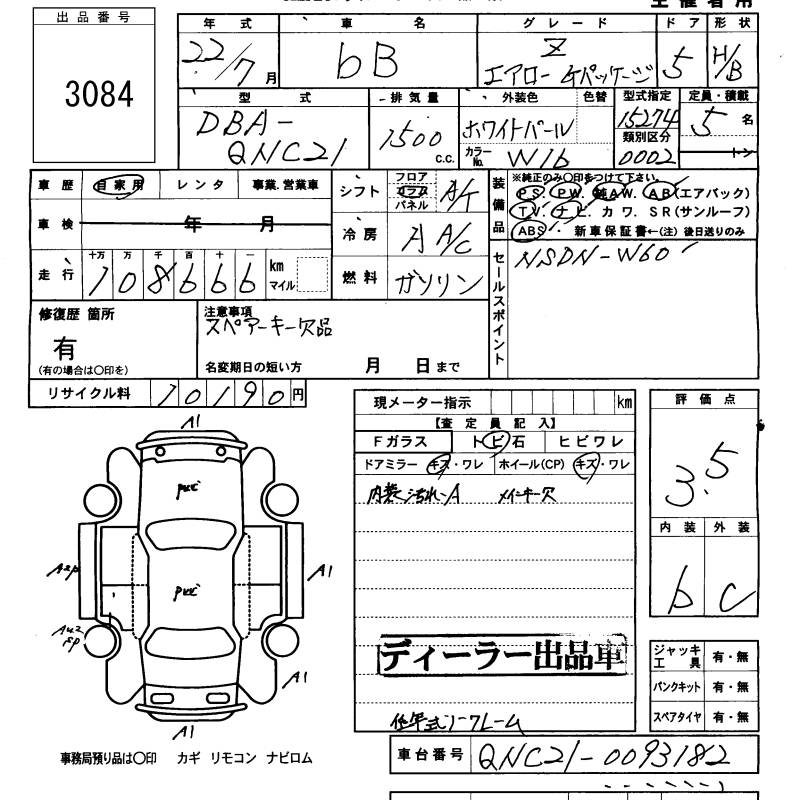 出品番号
3084
年式 車名 グレード ドア 形状
22/7月 bB Z エアロ-Gパッケージ 5 H/B
型式 排気量 外装色 色替 型式指定 定員・積載
DBA-QNC21 1500 c.c. ホワイトパール 15274 5名
カラーNo. W16 類別区分 0002 トン
車歴 自家用 レンタ 事業.営業車
シフト フロア コラム パネル A/T
車検 年 月
冷房 A A/C
走行 十万 万 千 百 十 一
108666 km マイル
燃料 ガソリン
装備品 ※純正のみ○印をつけて下さい。
PS. PW. 純AW. AB(エアバック)
TV. ナビ. カワ. SR(サンルーフ)
ABS 新車保証書←(注)後日送りのみ
セールスポイント
NSDN-W60
修復歴 箇所
有
(有の場合は○印を)
注意事項
スペアーキー欠品
名変期日の短い方 月 日まで
リサイクル料 10190円
現メーター指示 km
【査定員記入】
Fガラス トビ石 ヒビワレ
ドアミラー キズ・ワレ ホイール(CP) キズ・ワレ
内装汚れ-A メインキー欠
ディーラー出品車
低年式ノークレーム
評価点
3.5
内装 外装
b C
ジャッキ工具 有・無
パンクキット 有・無
スペアタイヤ 有・無
A1
A2P
A1
A1
A1
事務局預り品は○印 カギ リモコン ナビロム
車台番号 QNC21-0093182